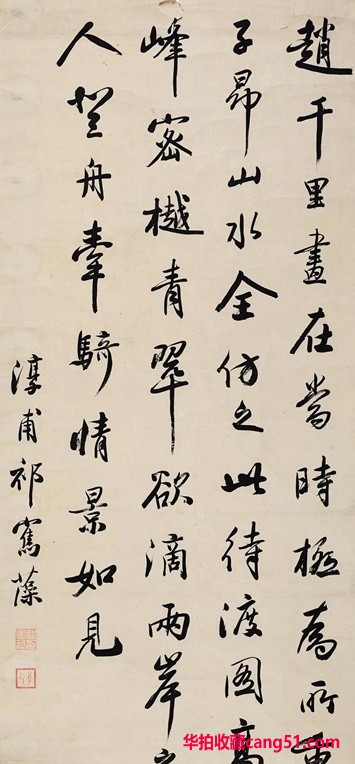 趙千里畫在當時極為所重
子昂山水全仿之此待渡图高
峰密樾青翠欲滴兩岸之
人登舟牽騎情景如見
淳甫祁寯藻
华拍收藏cang51.com